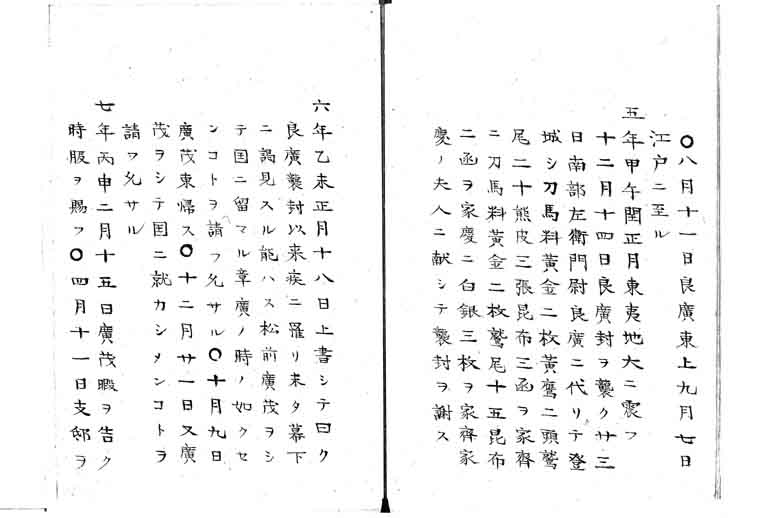 〇八月十一日良廣東上九月七日
江戸ニ至ル
五年甲午閏正月東夷地大ニ震フ
十二月十四日良廣封ヲ襲ク廿三
日南部左衛門尉良廣ニ代リテ登
城シ刀馬料黃金二枚黃鷹二頭鷲
尾二十熊皮三張昆布三函ヲ家齊
ニ刀馬料黃金二枚鷲尾十五昆布
二函ヲ家慶ニ白銀三枚ヲ家齊家
慶ノ夫人ニ献シテ襲封ヲ謝ス
六年乙未正月十八日上書シテ曰ク
良廣襲封以来疾ニ罹リ未タ幕下
ニ謁見スル能ハス松前廣茂ヲシ
テ国ニ留マル章廣ノ時ノ如クセ
ンコトヲ請フ允サル〇十月九日
廣茂東帰ス〇十二月廿一日又廣
茂ヲシテ国ニ就カシメンコトヲ
請フ允サル
七年丙申二月十五日廣茂暇ヲ告ク
時服ヲ賜フ〇四月十一日支邸ヲ